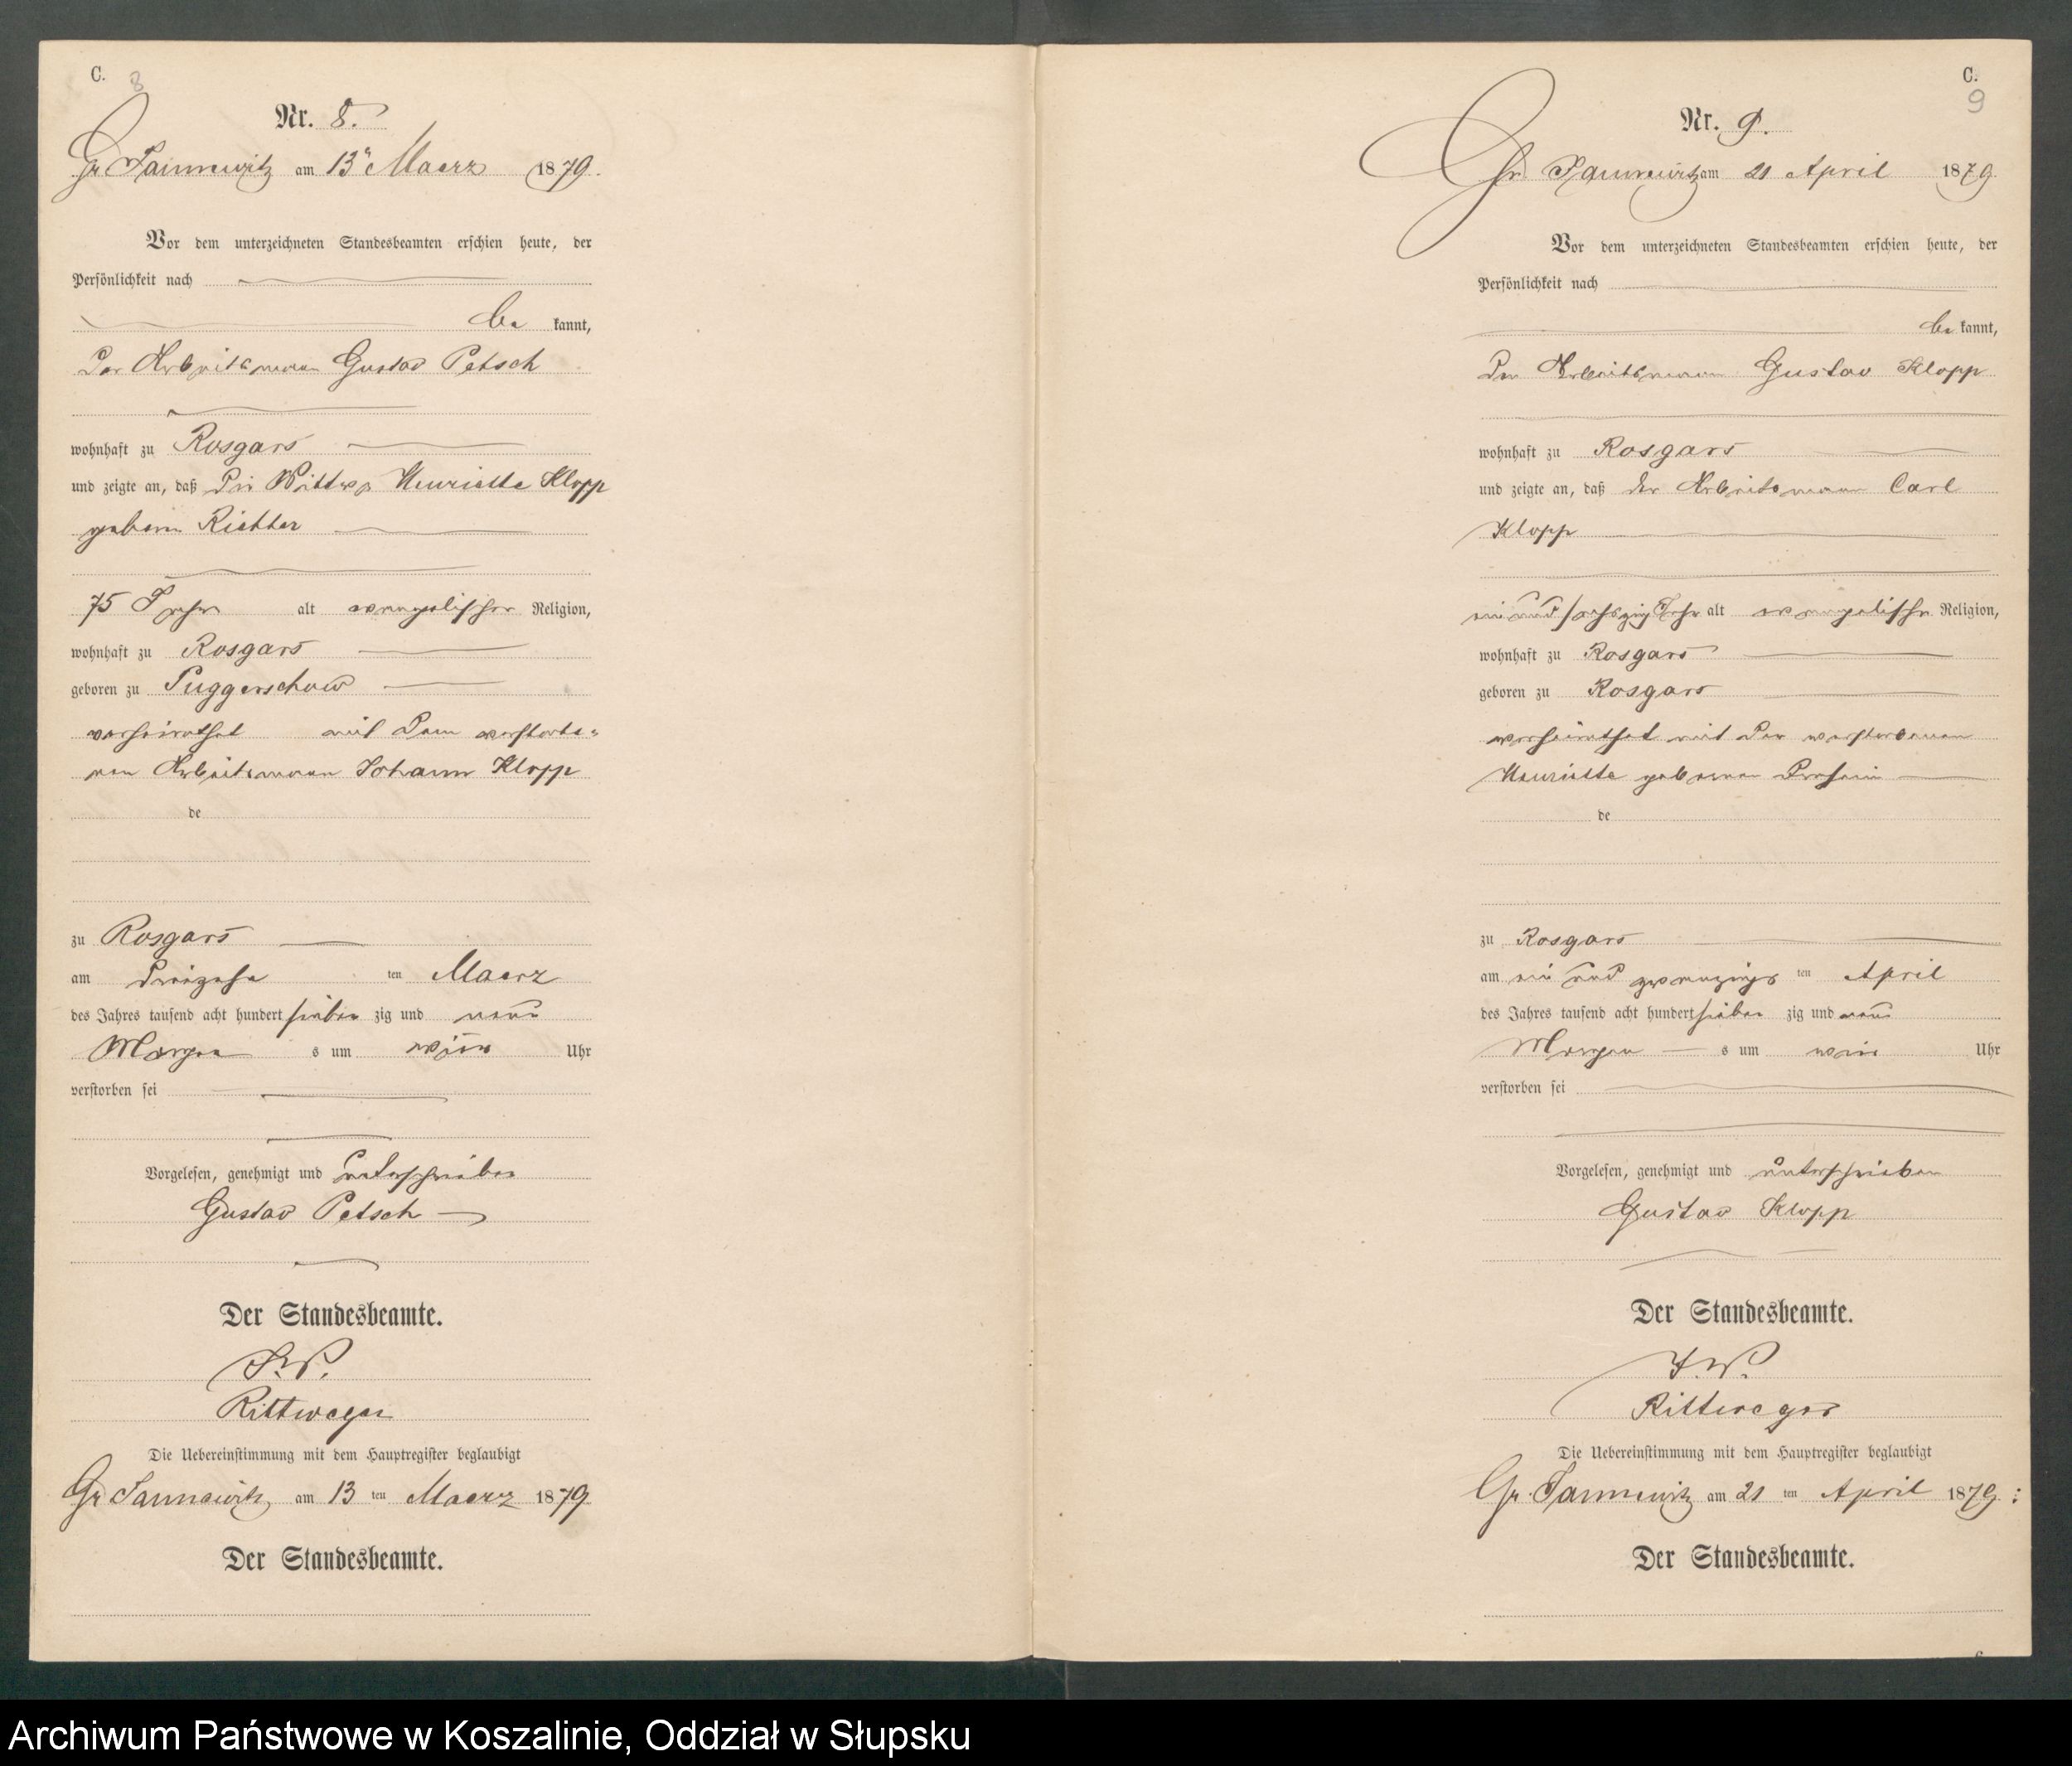 C.
8
Nr. 8.
Gr Jannewitz am 13 Maerz 1879.
Vor dem unterzeichneten Standesbeamten erschien heute, der
Persönlichkeit nach
be kannt,
der Arbeitsmann Gustav Petsch
wohnhaft zu Rosgars
und zeigte an, daß die Wittwe Henriette Klopp
geborne Richter
75 Jahre alt evangelischer Religion,
wohnhaft zu Rosgars
geboren zu Puggerschow
verheirathet mit dem verstorbe-
nen Arbeitsmann Johann Klopp
de
zu Rosgars
am dreizehn ten Maerz
des Jahres tausend acht hundert sieben zig und neun
Morgen s um Uhr
verstorben sei
Vorgelesen, genehmigt und unterschrieben
Gustav Petsch
Der Standesbeamte.
J.V.
Rittweger
Die Uebereinstimmung mit dem Hauptregister beglaubigt
Gr Jannewitz am 13 ten Maerz 1879
Der Standesbeamte.
C.
9
Nr. 9.
Gr Jannewitz am 21 April 1879.
Vor dem unterzeichneten Standesbeamten erschien heute, der
Persönlichkeit nach
be kannt,
der Arbeitsmann Gustav Klopp
wohnhaft zu Rosgars
und zeigte an, daß der Arbeitsmann Carl
Klopp
ein und sechszig Jahr alt evangelischer Religion,
wohnhaft zu Rosgars
geboren zu Rosgars
verheirathet mit der verstorbenen
Henriette geborenen
de
zu Rosgars
am ein und zwanzigs ten April
des Jahres tausend acht hundert sieben zig und neun
Morgen s um Uhr
verstorben sei
Vorgelesen, genehmigt und unterschrieben
Gustav Klopp
Der Standesbeamte.
J.V.
Rittweger
Die Uebereinstimmung mit dem Hauptregister beglaubigt
Gr. Jannewitz am 21 ten April 1879.
Der Standesbeamte.
Archiwum Państwowe w Koszalinie, Oddział w Słupsku